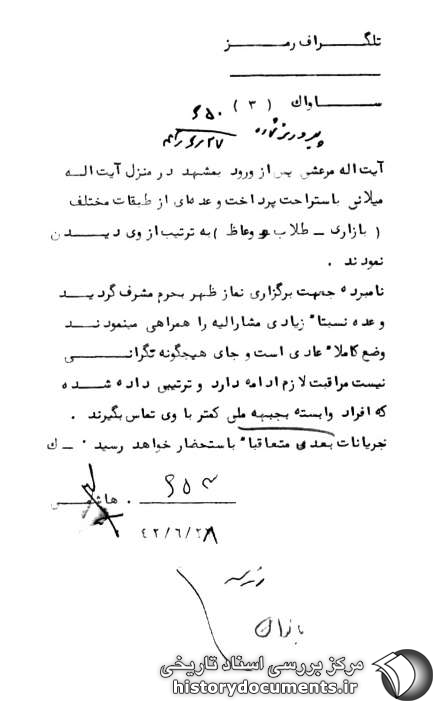 تلگراف رمز
ساواک ( ۳ ) ۶۵۰
پیرو رمز شماره
آیت اله مرعشی پس از ورود بمشهد در منزل آیت اله
میلانی باستراحت پرداخت و عده‌ای از طبقات مختلف
( بازاری – طلاب و وعاظ ) به ترتیب از وی دیدن
نمودند .
نامبرده جهت برگزاری نماز ظهر بحرم مشرف گردید
و عده نسبتا" زیادی مشارالیه را همراهی مینمودند
وضع کاملا" عادی است و جای هیچگونه نگرانی
نیست مراقبت لازم ادامه دارد و ترتیبی داده شده
که افراد وابسته بجبهه ملی کمتر با وی تماس بگیرند .
جریانات بعدی متعاقبا" باستحضار خواهد رسید . – ک
۶۵۳
. هاشمی
۴۲/۶/۲۸
مرکز بررسی اسناد تاریخی
historydocuments.ir